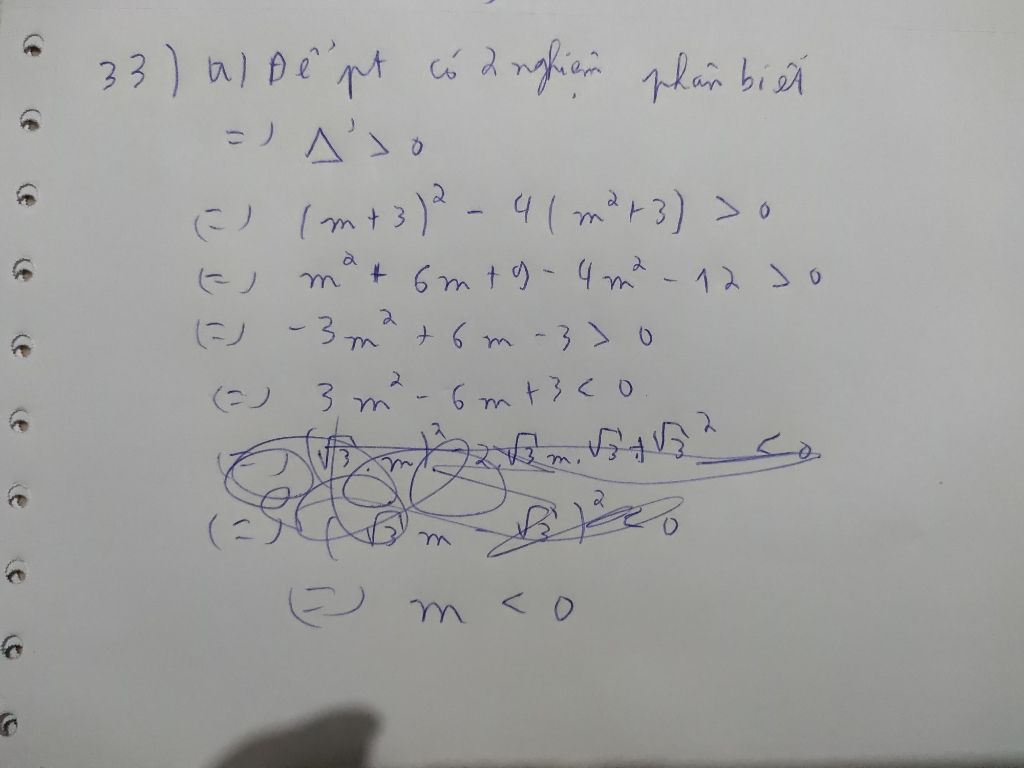 33) a) Để pt có 2 nghiệm phân biệt
=) Δ' > 0
(=) (m+3)² - 4(m²+3) > 0
(=) m² + 6m + 9 - 4m² - 12 > 0
(=) -3m² + 6m - 3 > 0
(=) 3m² - 6m + 3 < 0
(=) (√3.m)² - 2.√3m.√3 + √3² < 0
(=) (√3m - √3)² < 0
(=) m < 0